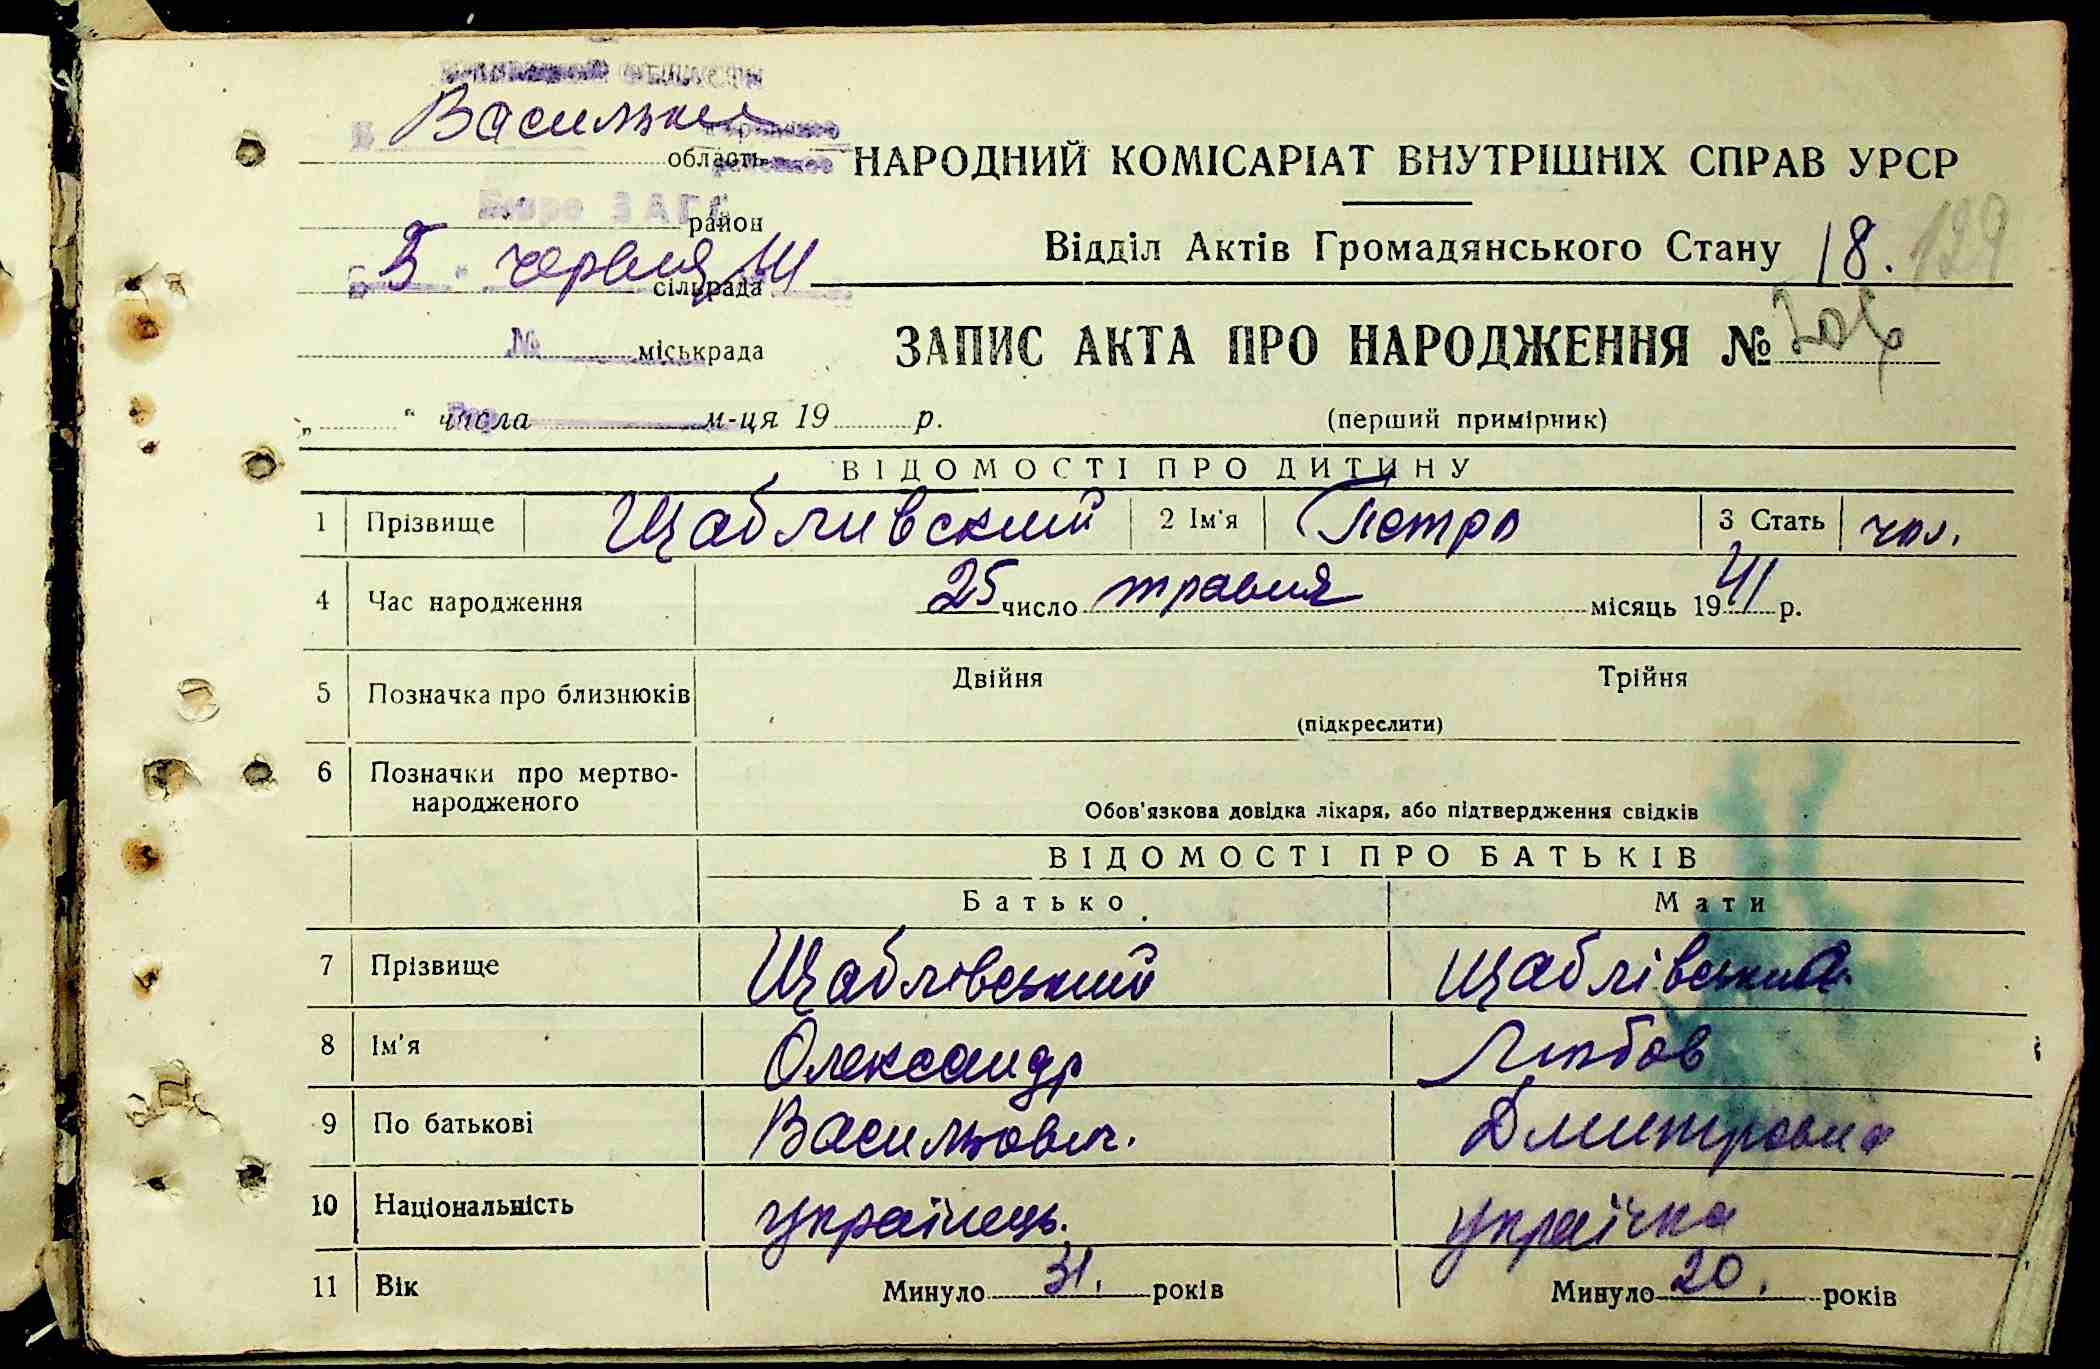 область
НАРОДНИЙ КОМІСАРІАТ ВНУТРІШНІХ СПРАВ УРСР
Бюро ЗАГС
район
Відділ Актів Громадянського Стану 18. 129
5 червня 41
сільрада
№ міськрада
ЗАПИС АКТА ПРО НАРОДЖЕННЯ №
„ “ числа м-ця 19 р.
(перший примірник)
ВІДОМОСТІ ПРО ДИТИНУ
1 Прізвище Щабливский 2 Ім'я Петро 3 Стать чол.
4 Час народження 25 число травня місяць 1941 р.
5 Позначка про близнюків Двійня Трійня
(підкреслити)
6 Позначки про мертво-
народженого
Обов'язкова довідка лікаря, або підтвердження свідків
ВІДОМОСТІ ПРО БАТЬКІВ
Батько Мати
7 Прізвище Щаблівський Щаблівська
8 Ім'я Олександр Любов
9 По батькові Васильович. Дмитровна
10 Національність українець. українка
11 Вік Минуло 31, років Минуло 20, років